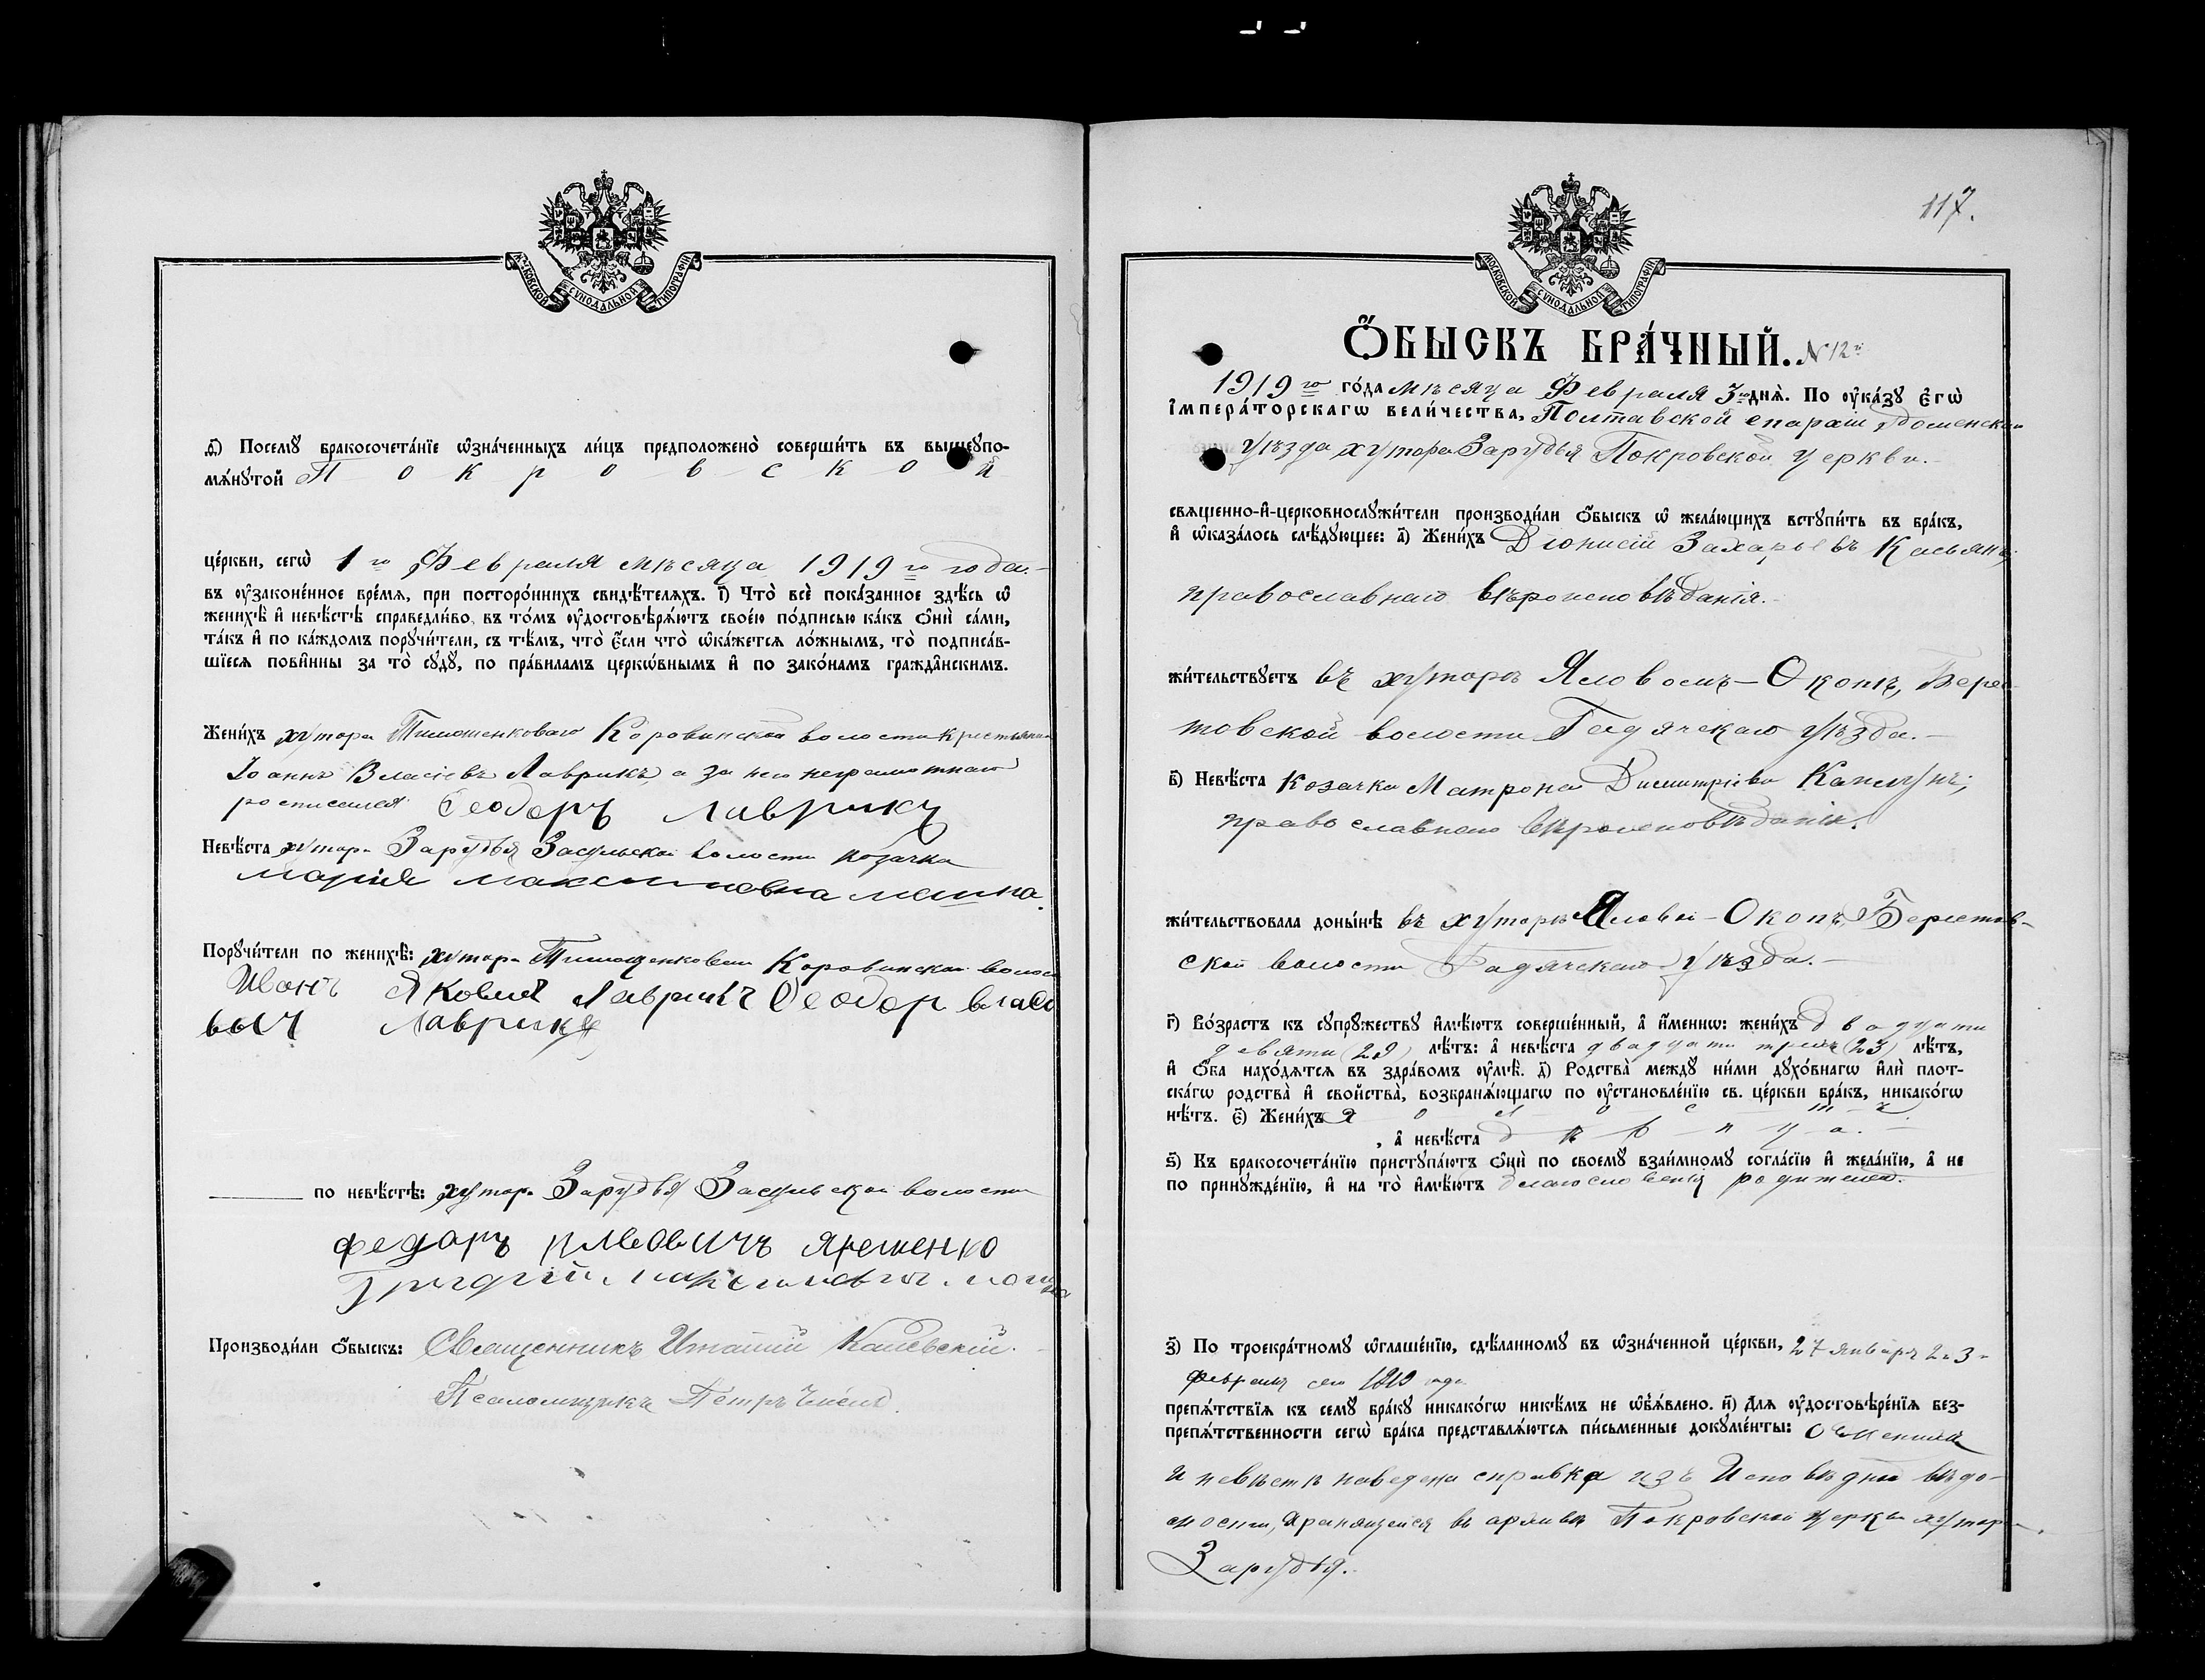 МОСКОВСКОЙ СѴНОДАЛЬНОЙ ТИПОГРАФІИ
д҃) Посемꙋ бракосочета́нїе ѡ҆зна́ченныхъ ли́цъ предположено̀ соверши́ть въ вышеꙋпо-
мѧ́нꙋтой Покровской
це́ркви, сегѡ̀ 1го Февраля мѣсяца 1919го года.
въ ᲂу҆законе́нное вре́мѧ, при посторо́ннихъ свидѣ́телѧхъ. і҃) Что̀ всѐ пока́занное здѣ́сь ѡ҆
женихѣ̀ и҆ невѣ́стѣ справедли́во, въ то́мъ ᲂу҆достовѣрѧ́ютъ своє́ю по́дписью ка́къ ѻ҆нѝ са́ми,
та́къ и҆ по ка́ждомъ порꙋчи́тели, съ тѣ́мъ, что̀ є҆́сли что̀ ѡ҆ка́жетсѧ ло́жнымъ, то̀ подписа́в-
шїесѧ пови́нны за то̀ сꙋдꙋ̀, по пра́виламъ церкѡ́внымъ и҆ по зако́намъ гражда́нскимъ.
Жени́хъ хутора Тимошенкового Коровинской волости крестьянин
Іоаннъ Власіевъ Лаврикъ, а за него неграмотнаго
росписался Феодоръ Лаврикъ
Невѣ́ста хутора Зарудья Засульской волости козачка
Марія Максимовна
Порꙋчи́тели по женихѣ̀: хутора Тимошенкового Коровинской волос
Иванъ Яковлев Лаврикъ Феодор власо
выч Лаврикъ
по невѣ́стѣ: хутора Зарудья Засульской волости
Федоръ Яременко
Григорій Максимович
Производи́ли ѻ҆́быскъ: Священникъ Игнатій
Псаломщикъ Петръ
117.
МОСКОВСКОЙ СѴНОДАЛЬНОЙ ТИПОГРАФІИ
Ѻ҆́БЫСКЪ БРА́ЧНЫЙ. N 12й
1919го го́да мѣсяца Февраля 3го днѧ̀. По ᲂу҆ка́зꙋ є҆гѡ̀
і҆мпера́торскагѡ вели́чества, Полтавской епархіи, Роменскаго
уѣзда хутора Зарудья Покровской церкви.
свѧщенно-и҆-церковнослꙋжи́тели производи́ли ѻ҆́быскъ ѡ҆ жела́ющихъ встꙋпи́ть въ бра́къ,
и҆ ѡ҆каза́лось слѣ́дꙋющее: а҃) Жени́хъ Діонисій Захарьевъ Касьянъ,
православнаго вѣроисповѣданія.
жи́тельствꙋетъ въ хуторѣ Яловомъ-Окопѣ, Берес-
товской волости Гадячскаго уѣзда.
в҃) Невѣ́ста козачка Матрона Димитріева Каплунъ;
православнаго вѣроисповѣданія.
жи́тельствовала доны́нѣ въ хуторѣ Яловой-Окопѣ, Берестов-
ской волости Гадячскаго уѣзда.
г҃) Во́зрастъ къ сꙋпрꙋ́жествꙋ и҆мѣ́ютъ соверше́нный, а҆ и҆́меннѡ: жени́хъ двадцати
девяти (29) лѣ́тъ: а҆ невѣ́ста двадцати трехъ (23) лѣ́тъ,
и҆ ѻ҆́ба нахо́дѧтсѧ въ здра́вомъ ᲂу҆мѣ̀. д҃) Родства̀ междꙋ ни́ми дꙋхо́внагѡ и҆лѝ плот-
ска́гѡ родства̀ и҆ свойства̀, возбранѧ́ющагѡ по ᲂу҆становле́нїю св. це́ркви бра́къ, никако́гѡ
нѣ́тъ. є҃) Жени́хъ холостъ
, а҆ невѣ́ста дѣвица.
ѕ҃) Къ бракосочета́нїю пристꙋпа́ютъ ѻ҆нѝ по своемꙋ̀ взаи́мномꙋ согла́сїю и҆ жела́нїю, а҆ не
по принꙋжде́нїю, и҆ на то̀ и҆мѣ́ютъ благословеніе родителей.
з҃) По троекра́тномꙋ ѡ҆глаше́нїю, сдѣ́ланномꙋ въ ѡ҆зна́ченной це́ркви, 27 января 2 и 3
февраля сего 1919 года
препѧ́тствїѧ къ семꙋ̀ бра́кꙋ никако́гѡ никѣ́мъ не ѡ҆б̾ѧ́влено. и҃) Длѧ ᲂу҆достовѣре́нїѧ без-
препѧ́тственности сегѡ̀ бра́ка представлѧ́ютсѧ пи́сьменные докꙋме́нты: О женихѣ
и невѣстѣ наведена справка изъ Исповѣдной вѣдо-
мости, хранящейся въ архивѣ Покровской церкви хутора
Зарудья.